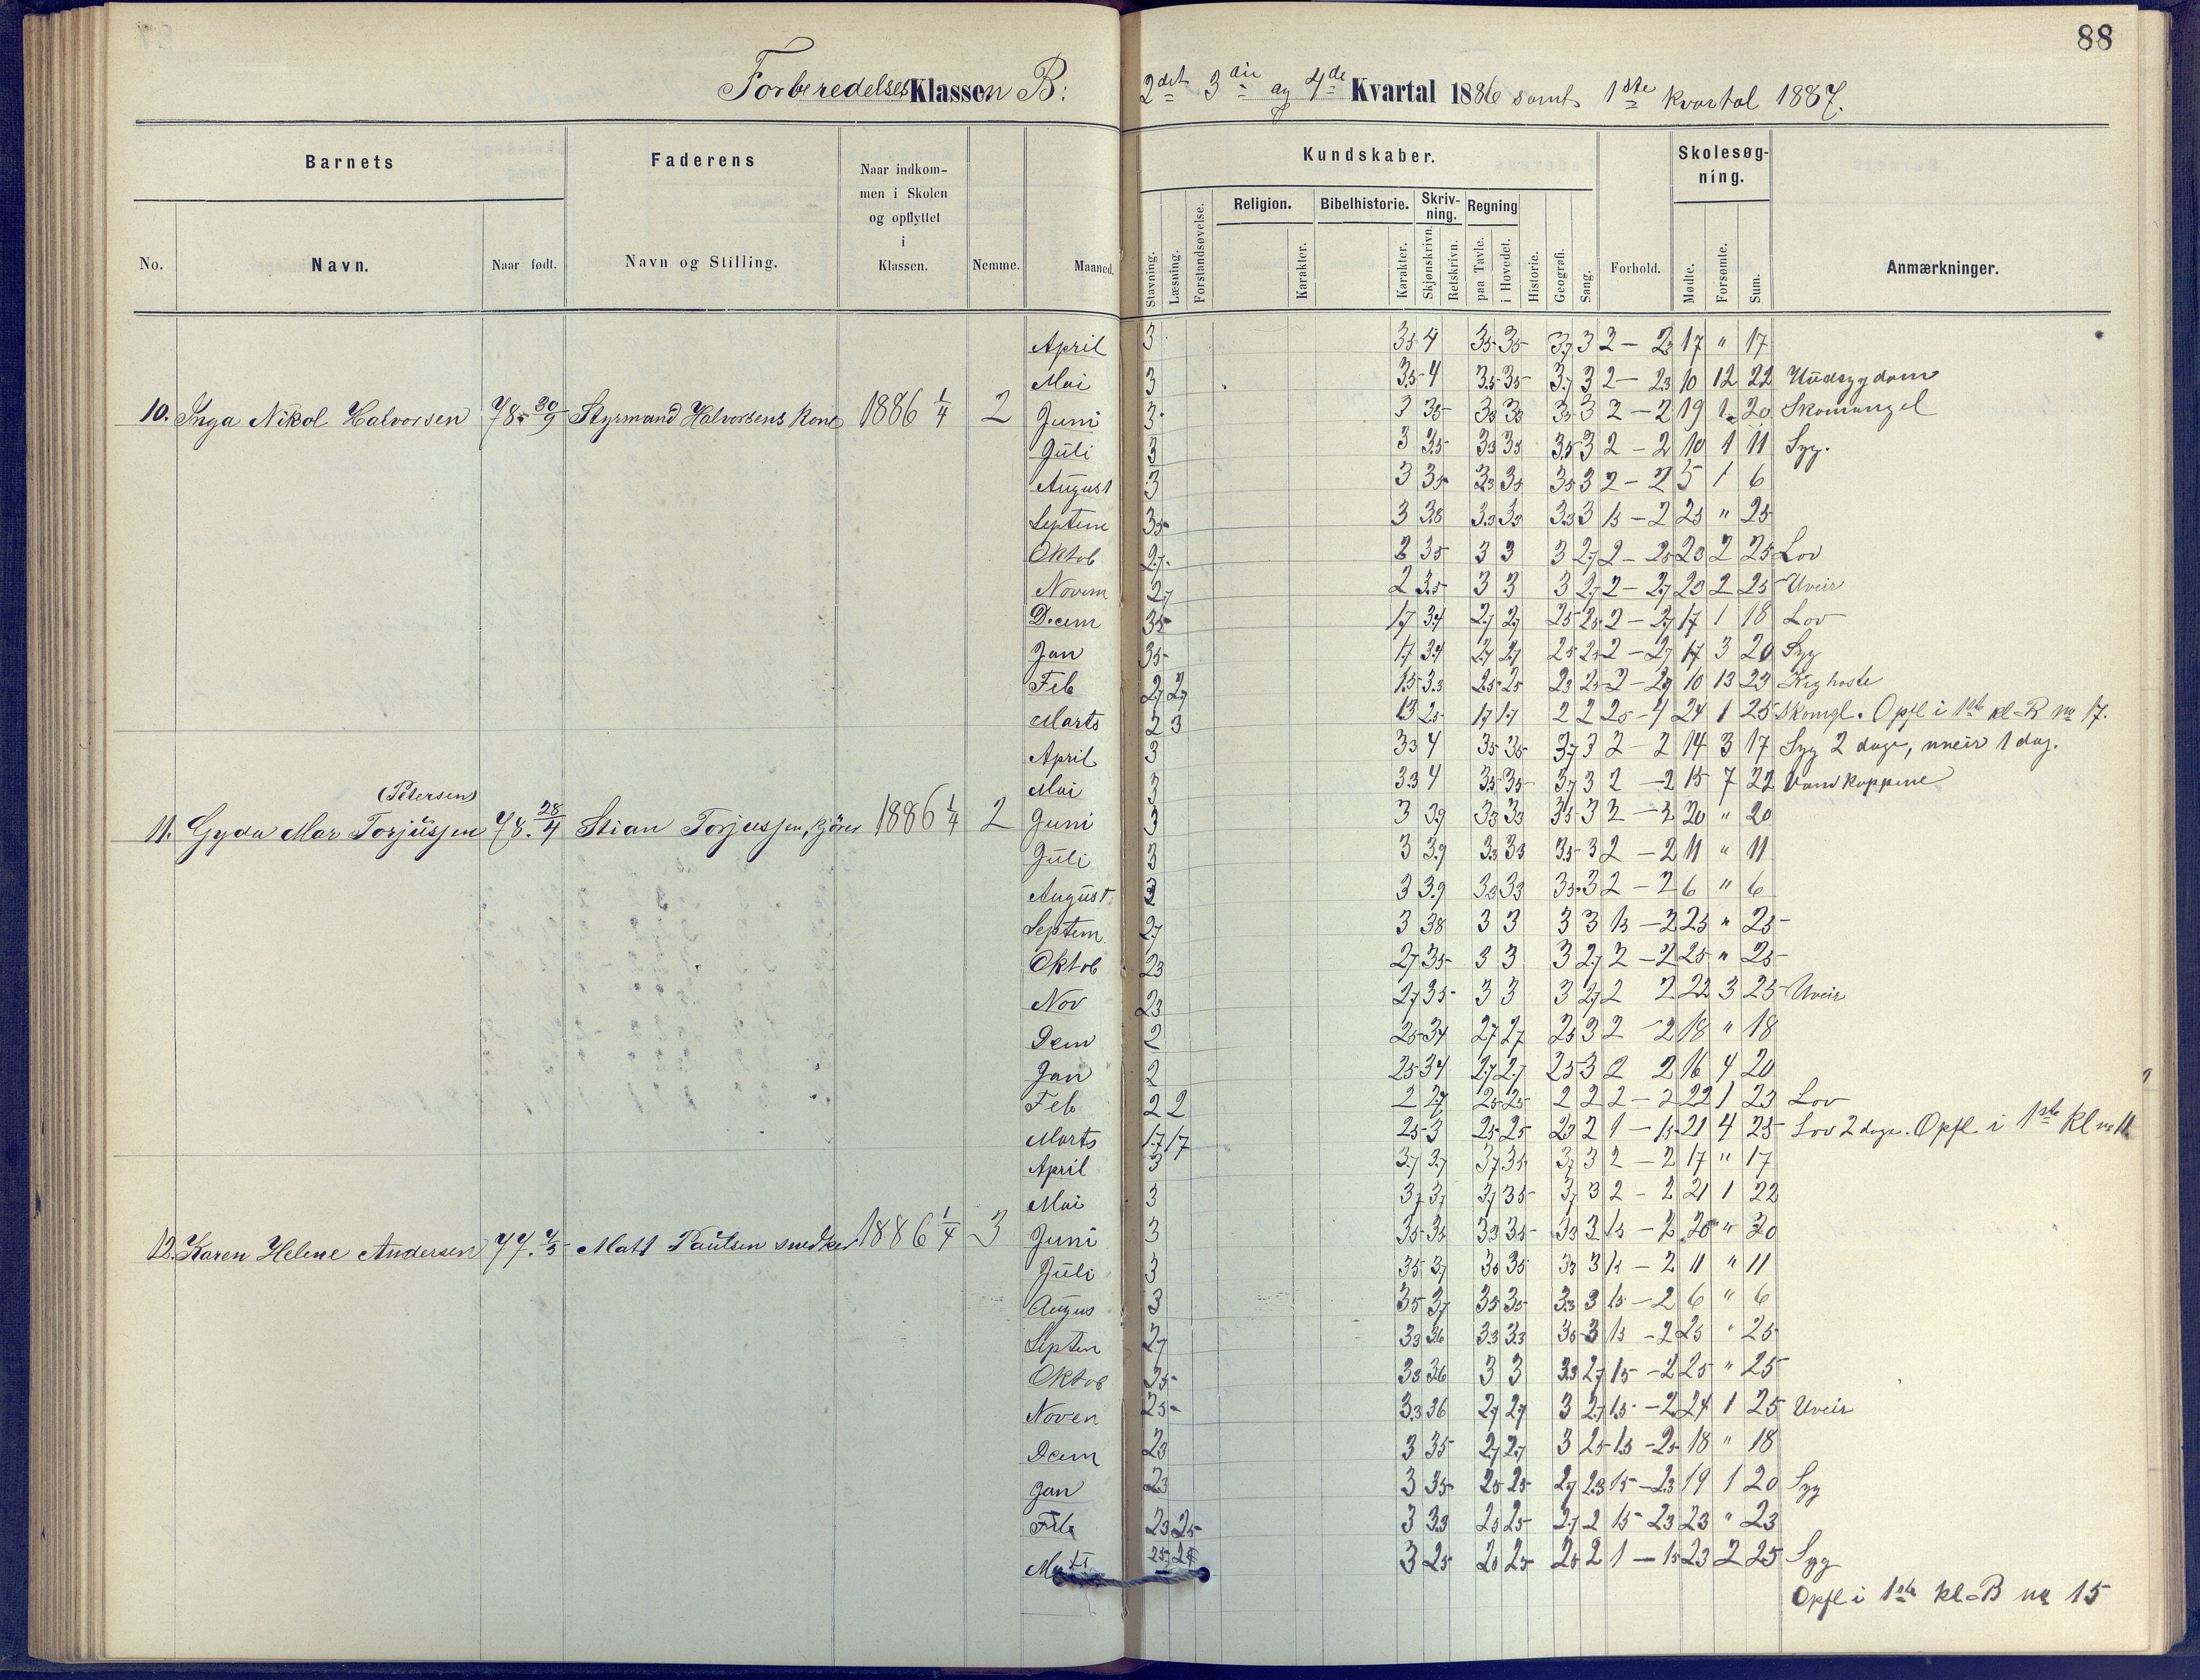 88
Forberedelses Klassen B: 2det 3die og 4de Kvartal 1886 samt 1ste Kvartal 1887.
Barnets Faderens Naar indkommen i Skolen og opflyttet i Klassen. Nemme. Maaned. Kundskaber. Forhold. Skolesøgning. Anmærkninger.
No. Navn. Naar født. Navn og Stilling.
Stavning. Læsning. Forstandsøvelse. Religion. Karakter. Bibelhistorie. Karakter. Skrivning. Skjønskrivn. Retskrivn. Regning paa Tavle. i Hovedet. Historie. Geografi. Sang. Mødte. Forsømte. Sum.
10. Inga Nikol Halvorsen 78. 30/9 Styrmand Halvorsens Kone 1886 1/4 2
April 3 35 4 35 35 37 3 2 – 23 17 " 17
Mai 3 35 4 35 35 37 3 2 – 23 10 12 22 Hudsygdom
Juni 3 3 35 33 33 33 3 2 – 2 19 1 20 Skomangel
Juli 3 3 35 33 33 35 3 2 – 2 10 1 11 Syg.
August 3 3 35 33 33 35 3 2 – 2 5 1 6
Septem 35 3 38 33 33 33 3 15 – 2 25 " 25
Oktob 27 2 35 3 3 3 27 2 – 25 23 2 25 Lov
Novem 27 2 35 3 3 3 27 2 – 27 23 2 25 Uveir
Decem 35 17 34 27 27 25 25 2 – 27 17 1 18 Lov
Jan 35 17 34 27 27 25 25 2 – 27 17 3 20 Syg
Feb 27 27 15 33 25 25 23 25 2 – 27 10 13 23 Kighoste
Marts 2 3 13 25 17 17 2 2 25 – 4 24 1 25 Skomgl. Opfl i 1ste kl-B no 17.
11. Gyda Mar Torjussen (Petersen) 78. 28/4 Stian Torjussen, kjører 1886 1/4 2
April 3 33 4 35 35 37 3 2 – 2 14 3 17 Syg 2 dage, uveir 1 dag.
Mai 3 33 4 35 35 37 3 2 – 2 15 7 22 Vandkoppene
Juni 3 3 39 33 33 35 3 2 – 2 20 " 20
Juli 3 3 39 33 33 35 3 2 – 2 11 " 11
August 3 3 39 33 33 35 3 2 – 2 6 " 6
Septem 27 3 38 3 3 3 3 15 – 2 25 " 25
Oktob 23 27 35 3 3 3 27 2 – 2 25 " 25
Nov 23 27 35 3 3 3 27 2 2 22 3 25 Uveir
Dem 2 25 34 27 27 25 3 2 – 2 18 " 18
Jan 2 25 34 27 27 25 3 2 2 16 4 20
Feb 2 2 2 27 25 25 2 2 2 – 2 22 1 23 Lov
Marts 17 17 25 3 25 25 23 2 1 – 15 21 4 25 Lov 2 dage. Opfl i 1ste Kl no 11.
12. Karen Helene Andersen 77. 4/5 Matt Paulsen snedker 1886 1/4 3
April 3 37 37 37 35 37 3 2 – 2 17 " 17
Mai 3 37 37 37 35 37 3 2 – 2 21 1 22
Juni 3 35 35 33 35 33 3 15 – 2 20 " 20
Juli 3 35 37 35 35 33 3 15 – 2 11 " 11
Augus 3 35 37 35 35 33 3 15 – 2 6 " 6
Septem 27 33 36 33 33 35 3 15 – 2 25 " 25
Oktob 25 33 36 3 3 33 27 15 – 2 25 " 25
Noven 25 33 36 27 27 3 27 15 – 2 24 1 25 Uveir
Dem 23 3 35 27 27 3 25 15 – 25 18 " 18
Jan 23 3 35 25 25 27 23 15 – 23 19 1 20 Syg
Feb 23 25 3 33 25 25 27 2 15 – 23 23 " 23
Marts 25 27 3 25 25 25 25 2 1 – 15 23 2 25 Syg
Opfl i 1ste kl-B no 15